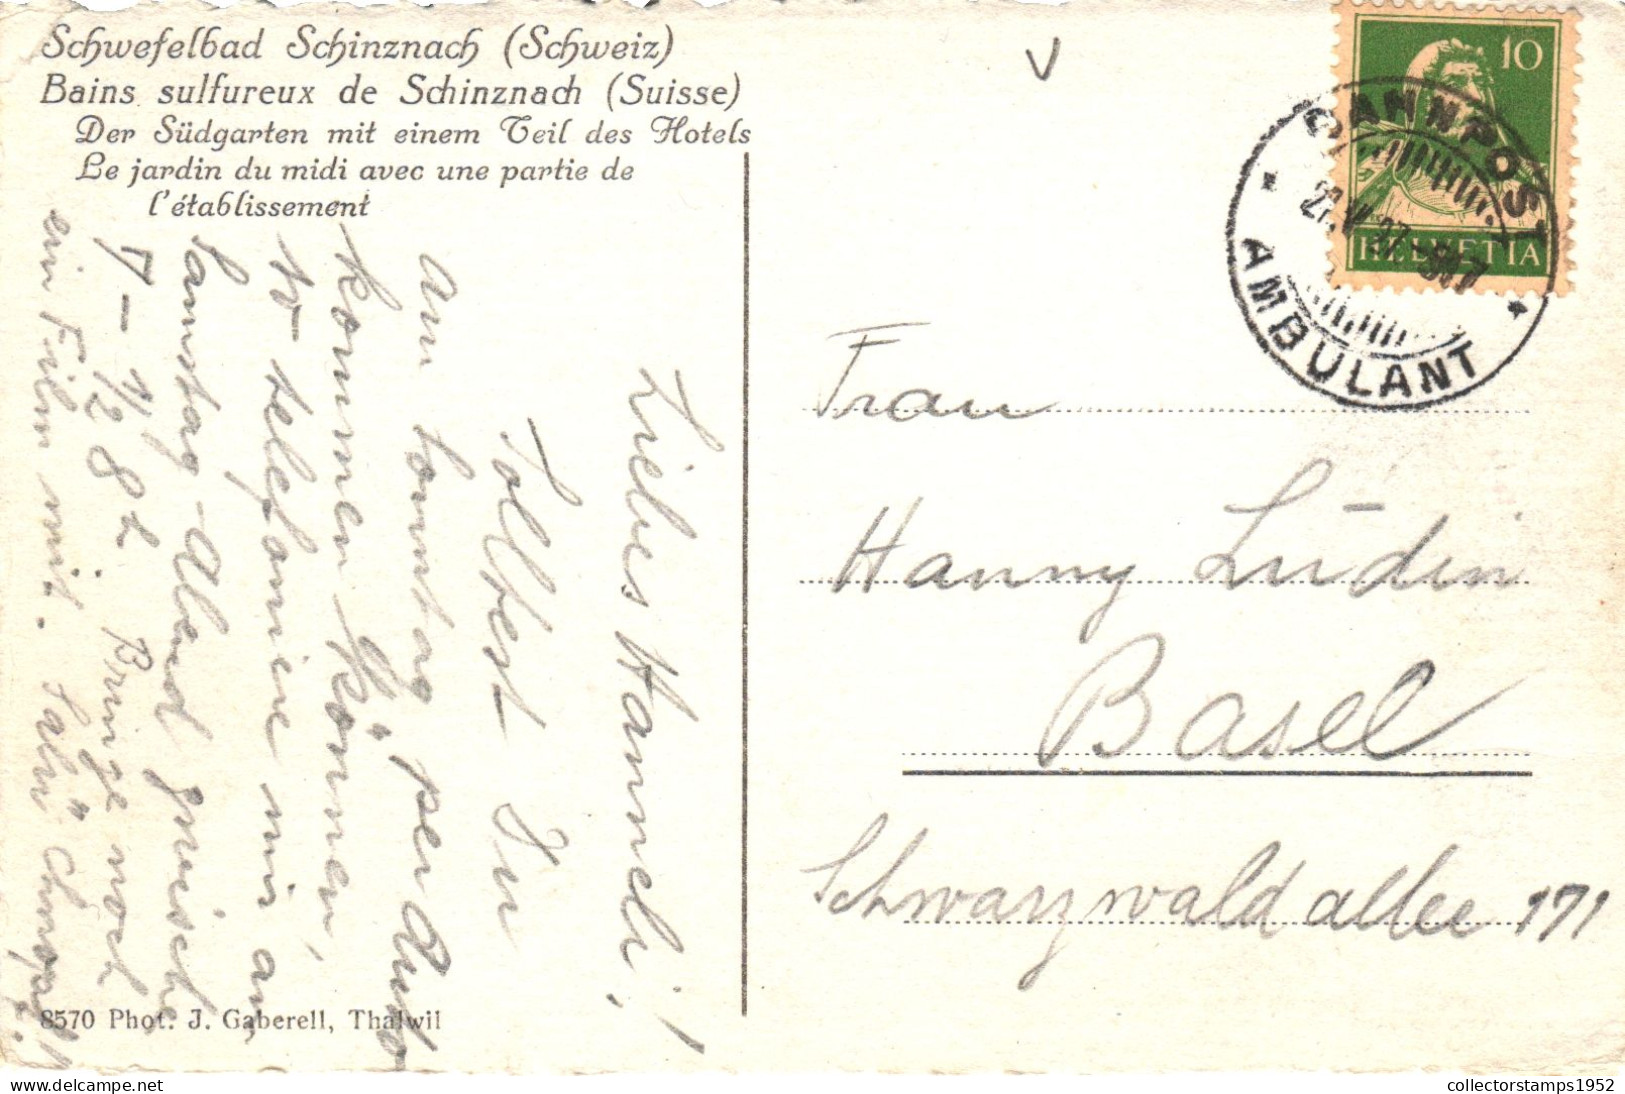 Schwefelbad Schinznach (Schweiz)
Bains sulfureux de Schinznach (Suisse)
Der Südgarten mit einem Teil des Hotels
Le jardin du midi avec une partie de
l'établissement
10
HELVETIA
BAHNPOST
AMBULANT
Liebes Hanneli,!
Solltest Du
am Sonntag per Auto
kommen können,
so telefoniere mir am
Samstag-Abend zwischen
7-1/2 8 h. Bringe noch
ein Film mit.
Frau
Hanny Lüdin
Basel
Schwarzwaldallee 171
8570 Phot. J. Gaberell, Thalwil
delcampe.net
collectorstamps1952